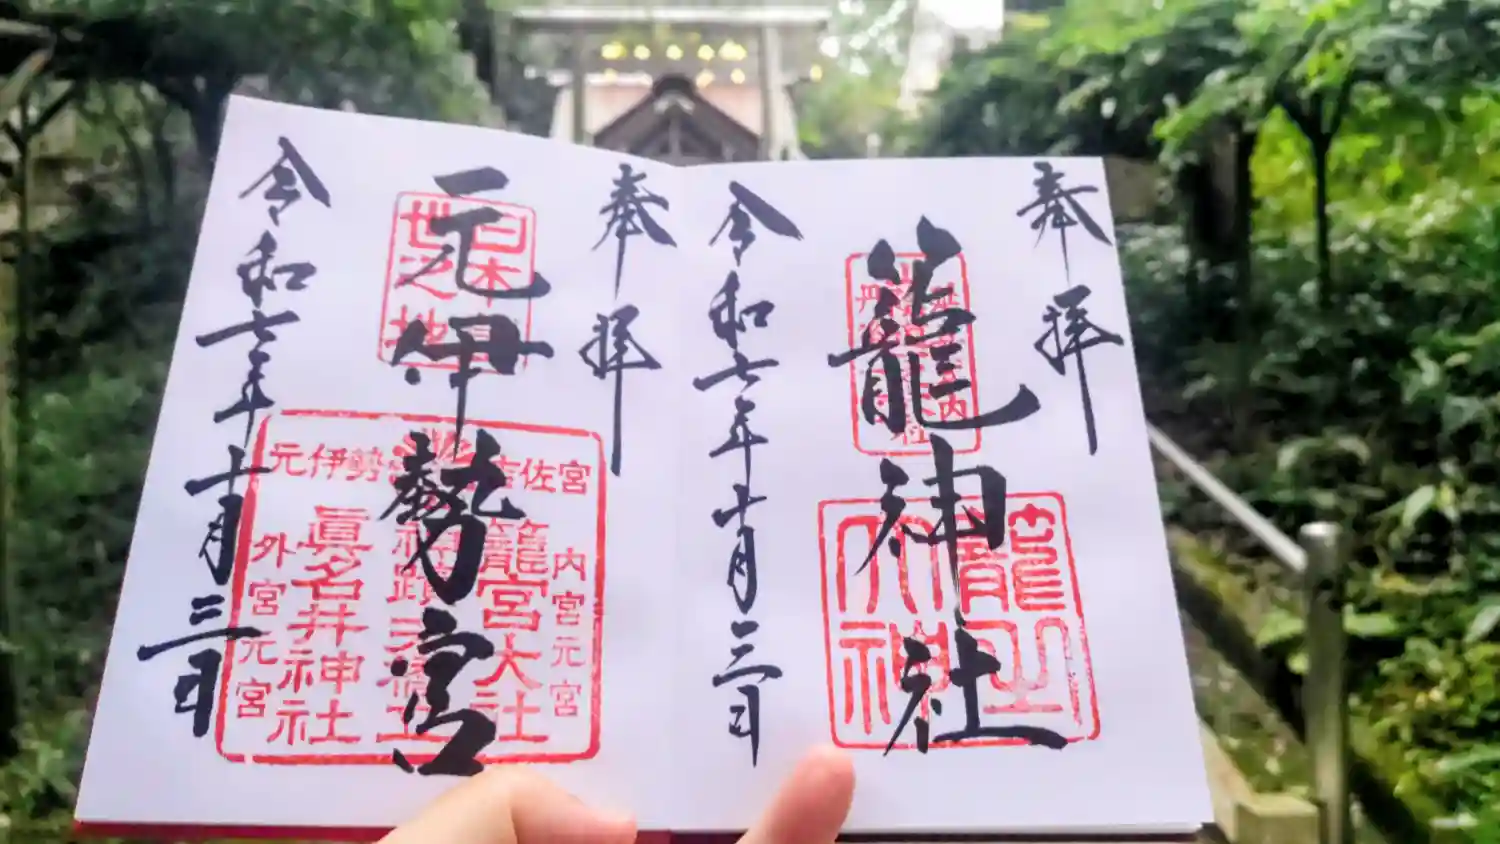 奉拝
籠神社
令和七年十月三日
奉拝
元伊勢宮
令和七年十月三日
日本
世之地
元伊勢
佐宮
籠宮大社
内宮元宮
眞名井神社
外宮元宮